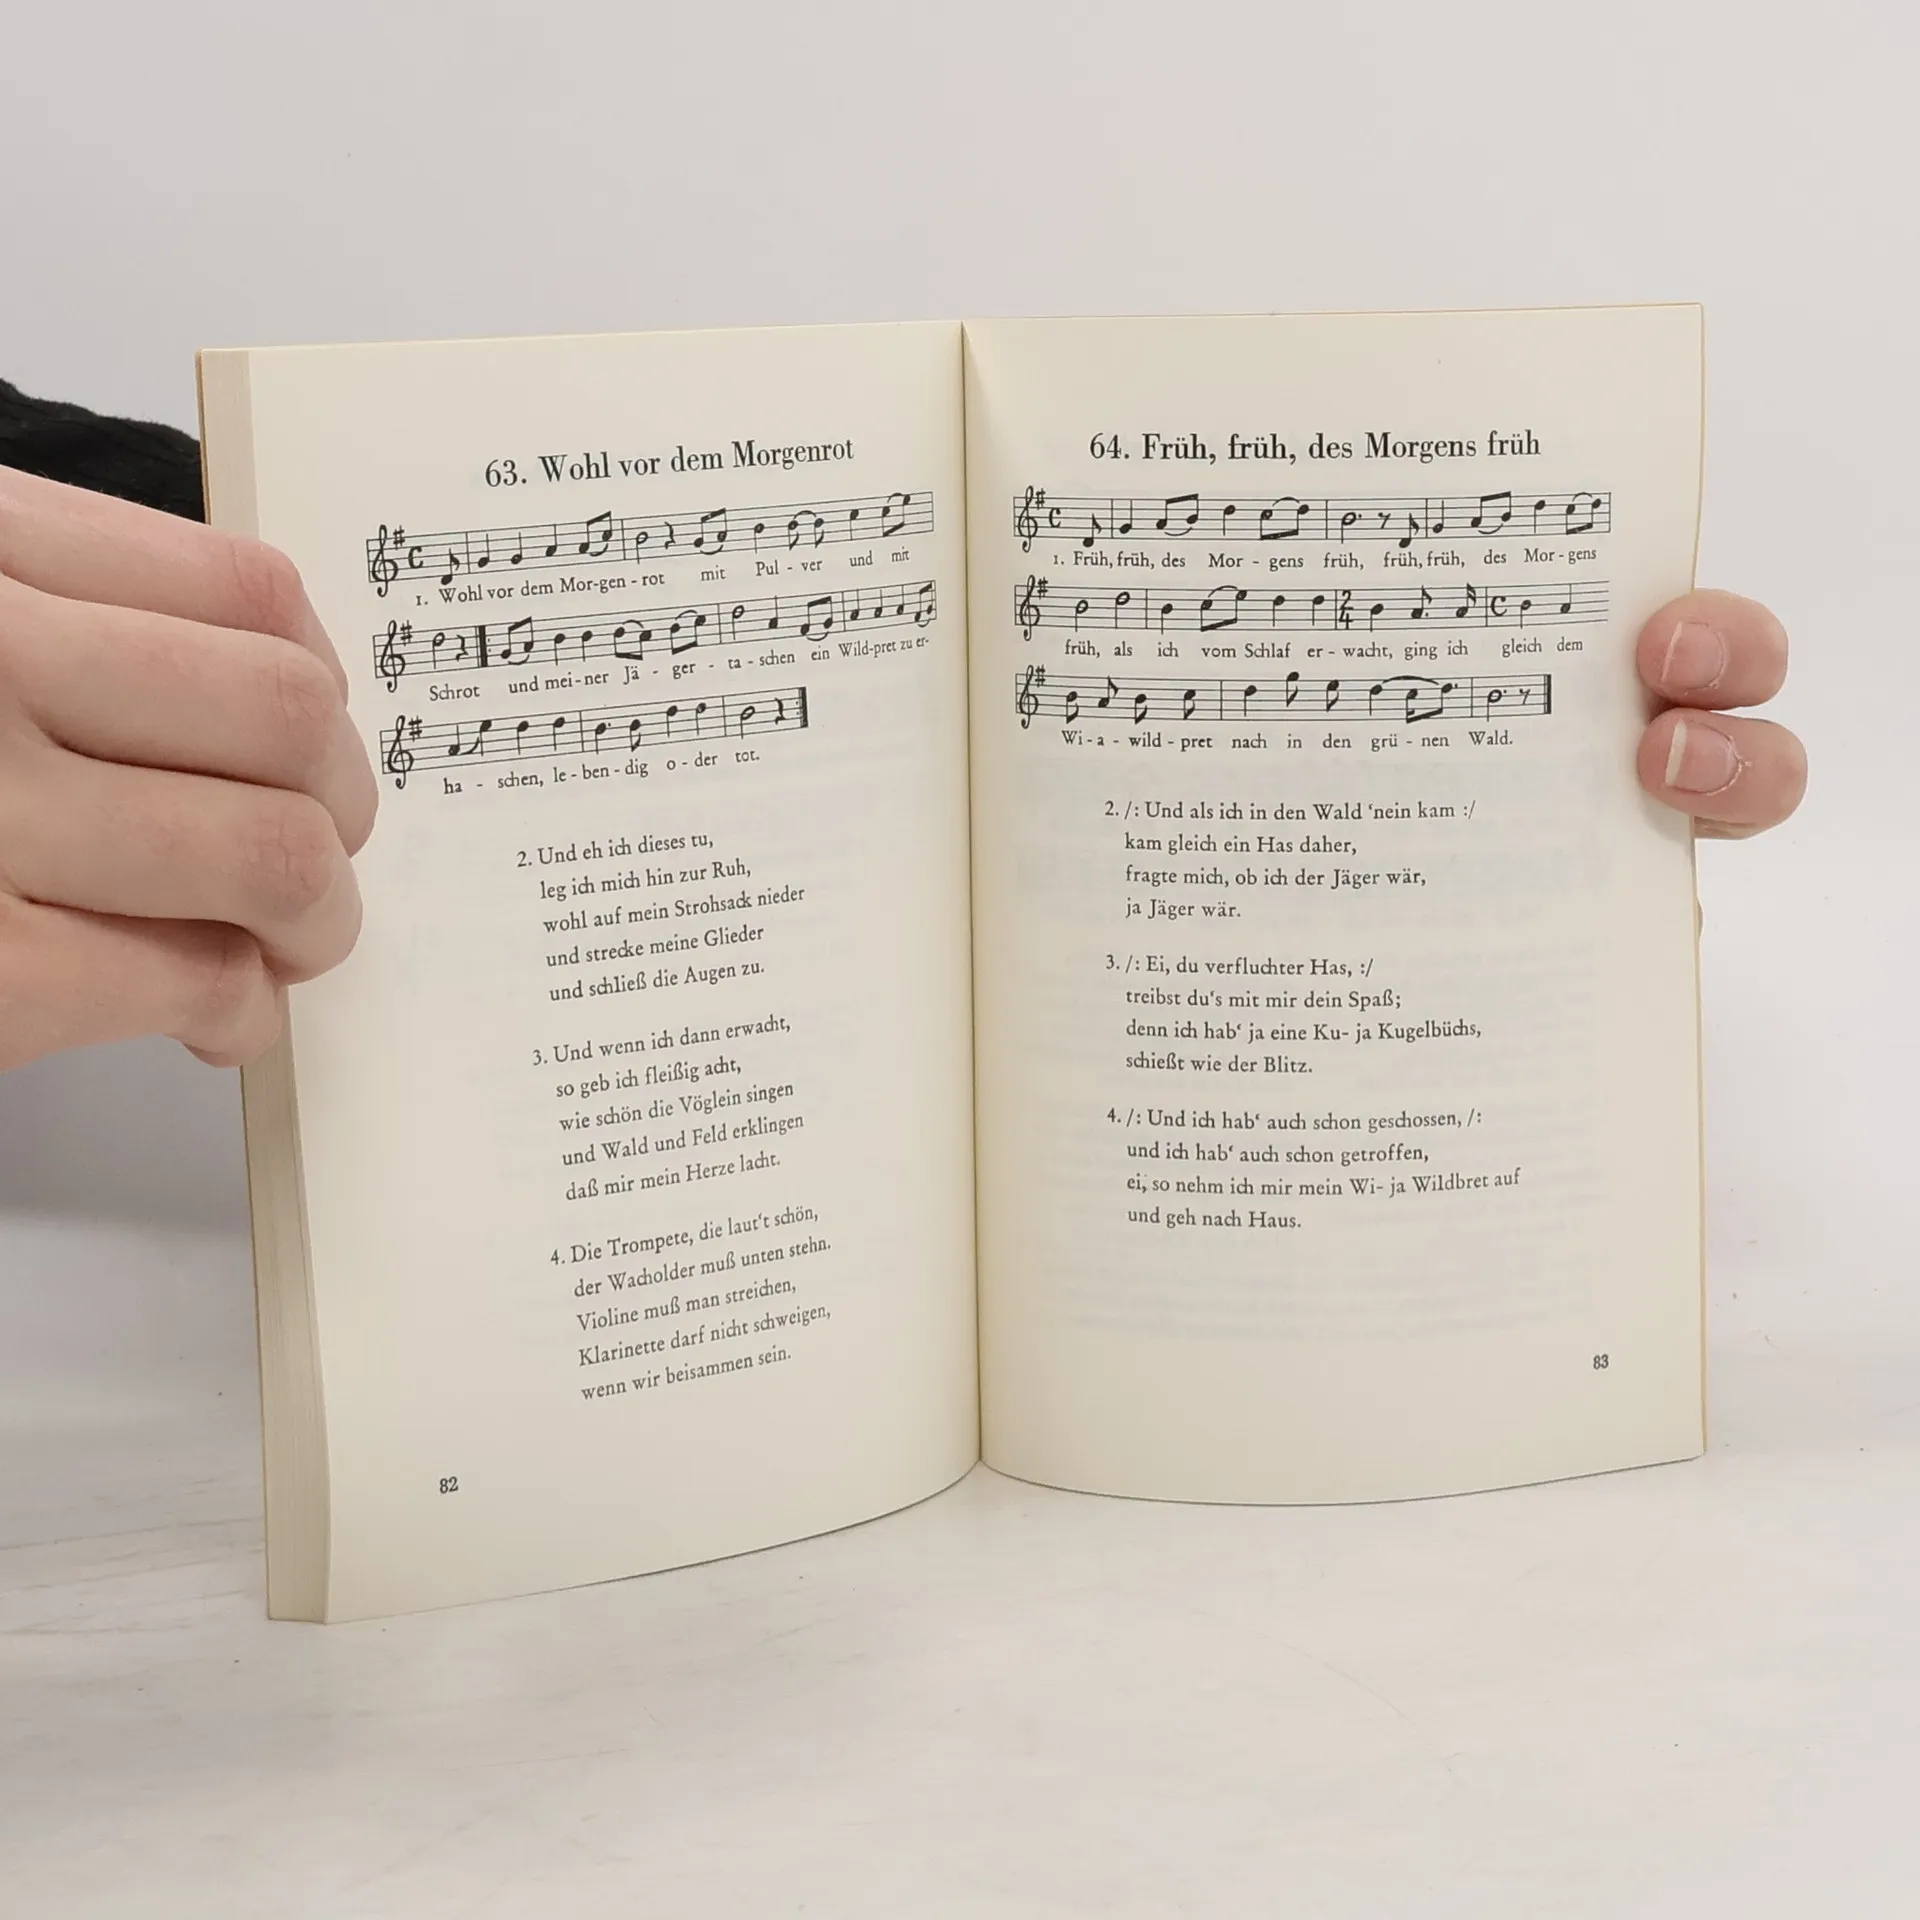 63. Wohl vor dem Morgenrot
1. Wohl vor dem Mor-gen-rot mit Pul - ver und mit
Schrot und mei-ner Jä - ger - ta - schen ein Wild-pret zu er-
ha - schen, le - ben - dig o - der tot.
2. Und eh ich dieses tu,
leg ich mich hin zur Ruh,
wohl auf mein Strohsack nieder
und strecke meine Glieder
und schließ die Augen zu.
3. Und wenn ich dann erwacht,
so geb ich fleißig acht,
wie schön die Vöglein singen
und Wald und Feld erklingen
daß mir mein Herze lacht.
4. Die Trompete, die laut‘t schön,
der Wacholder muß unten stehn.
Violine muß man streichen,
Klarinette darf nicht schweigen,
wenn wir beisammen sein.
82
64. Früh, früh, des Morgens früh
1. Früh, früh, des Mor - gens früh, früh, früh, des Mor - gens
2
4
früh, als ich vom Schlaf er - wacht, ging ich gleich dem
Wi - a - wild - pret nach in den grü - nen Wald.
2. /: Und als ich in den Wald ‘nein kam :/
kam gleich ein Has daher,
fragte mich, ob ich der Jäger wär,
ja Jäger wär.
3. /: Ei, du verfluchter Has, :/
treibst du‘s mit mir dein Spaß;
denn ich hab‘ ja eine Ku- ja Kugelbüchs,
schießt wie der Blitz.
4. /: Und ich hab‘ auch schon geschossen, /:
und ich hab‘ auch schon getroffen,
ei, so nehm ich mir mein Wi- ja Wildbret auf
und geh nach Haus.
83